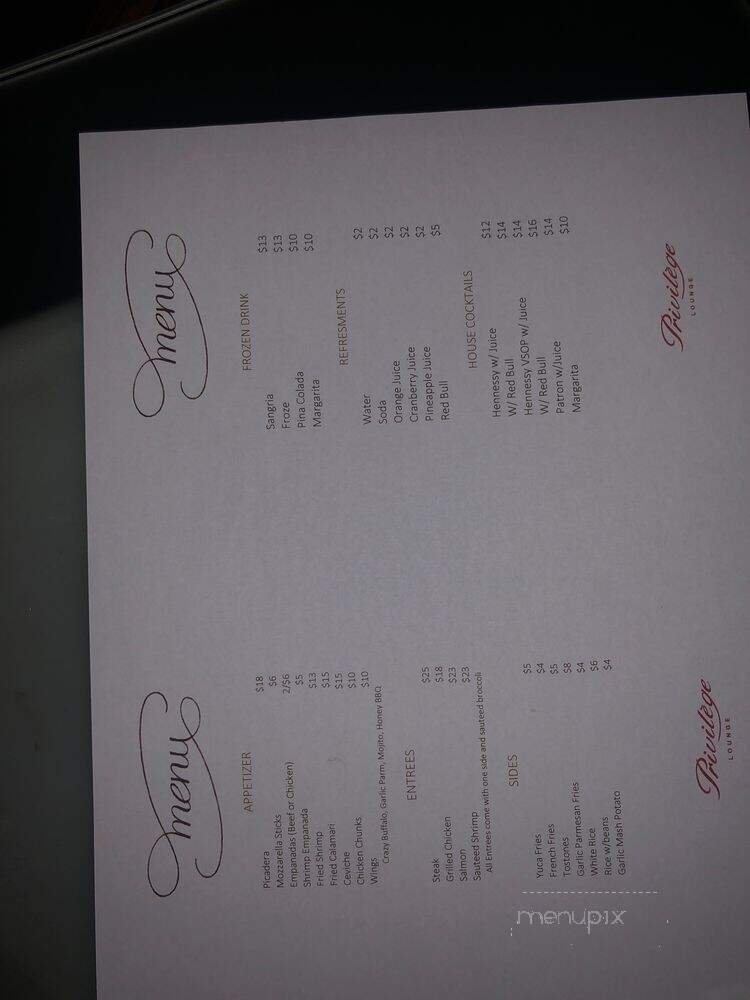 menu
APPETIZER
Picadera $18
Mozzarella Sticks $6
Empanadas (Beef or Chicken) 2/$6
Shrimp Empanada $5
Fried Shrimp $13
Fried Calamari $15
Ceviche $15
Chicken Chunks $10
Wings $10
Crazy Buffalo, Garlic Parm, Mojito, Honey BBQ
ENTREES
Steak $25
Grilled Chicken $18
Salmon $23
Sauteed Shrimp $23
All Entrees come with one side and sauteed broccoli
SIDES
Yuca Fries $5
French Fries $4
Tostones $5
Garlic Parmesan Fries $8
White Rice $4
Rice w/beans $6
Garlic Mash Potato $4
Privilège
LOUNGE
menu
FROZEN DRINK
Sangria $13
Froze $13
Pina Colada $10
Margarita $10
REFRESMENTS
Water $2
Soda $2
Orange Juice $2
Cranberry Juice $2
Pineapple Juice $2
Red Bull $5
HOUSE COCKTAILS
Hennessy w/ Juice $12
W/ Red Bull $14
Hennessy VSOP w/ Juice $14
W/ Red Bull $16
Patron w/Juice $14
Margarita $10
Privilège
LOUNGE
menupix